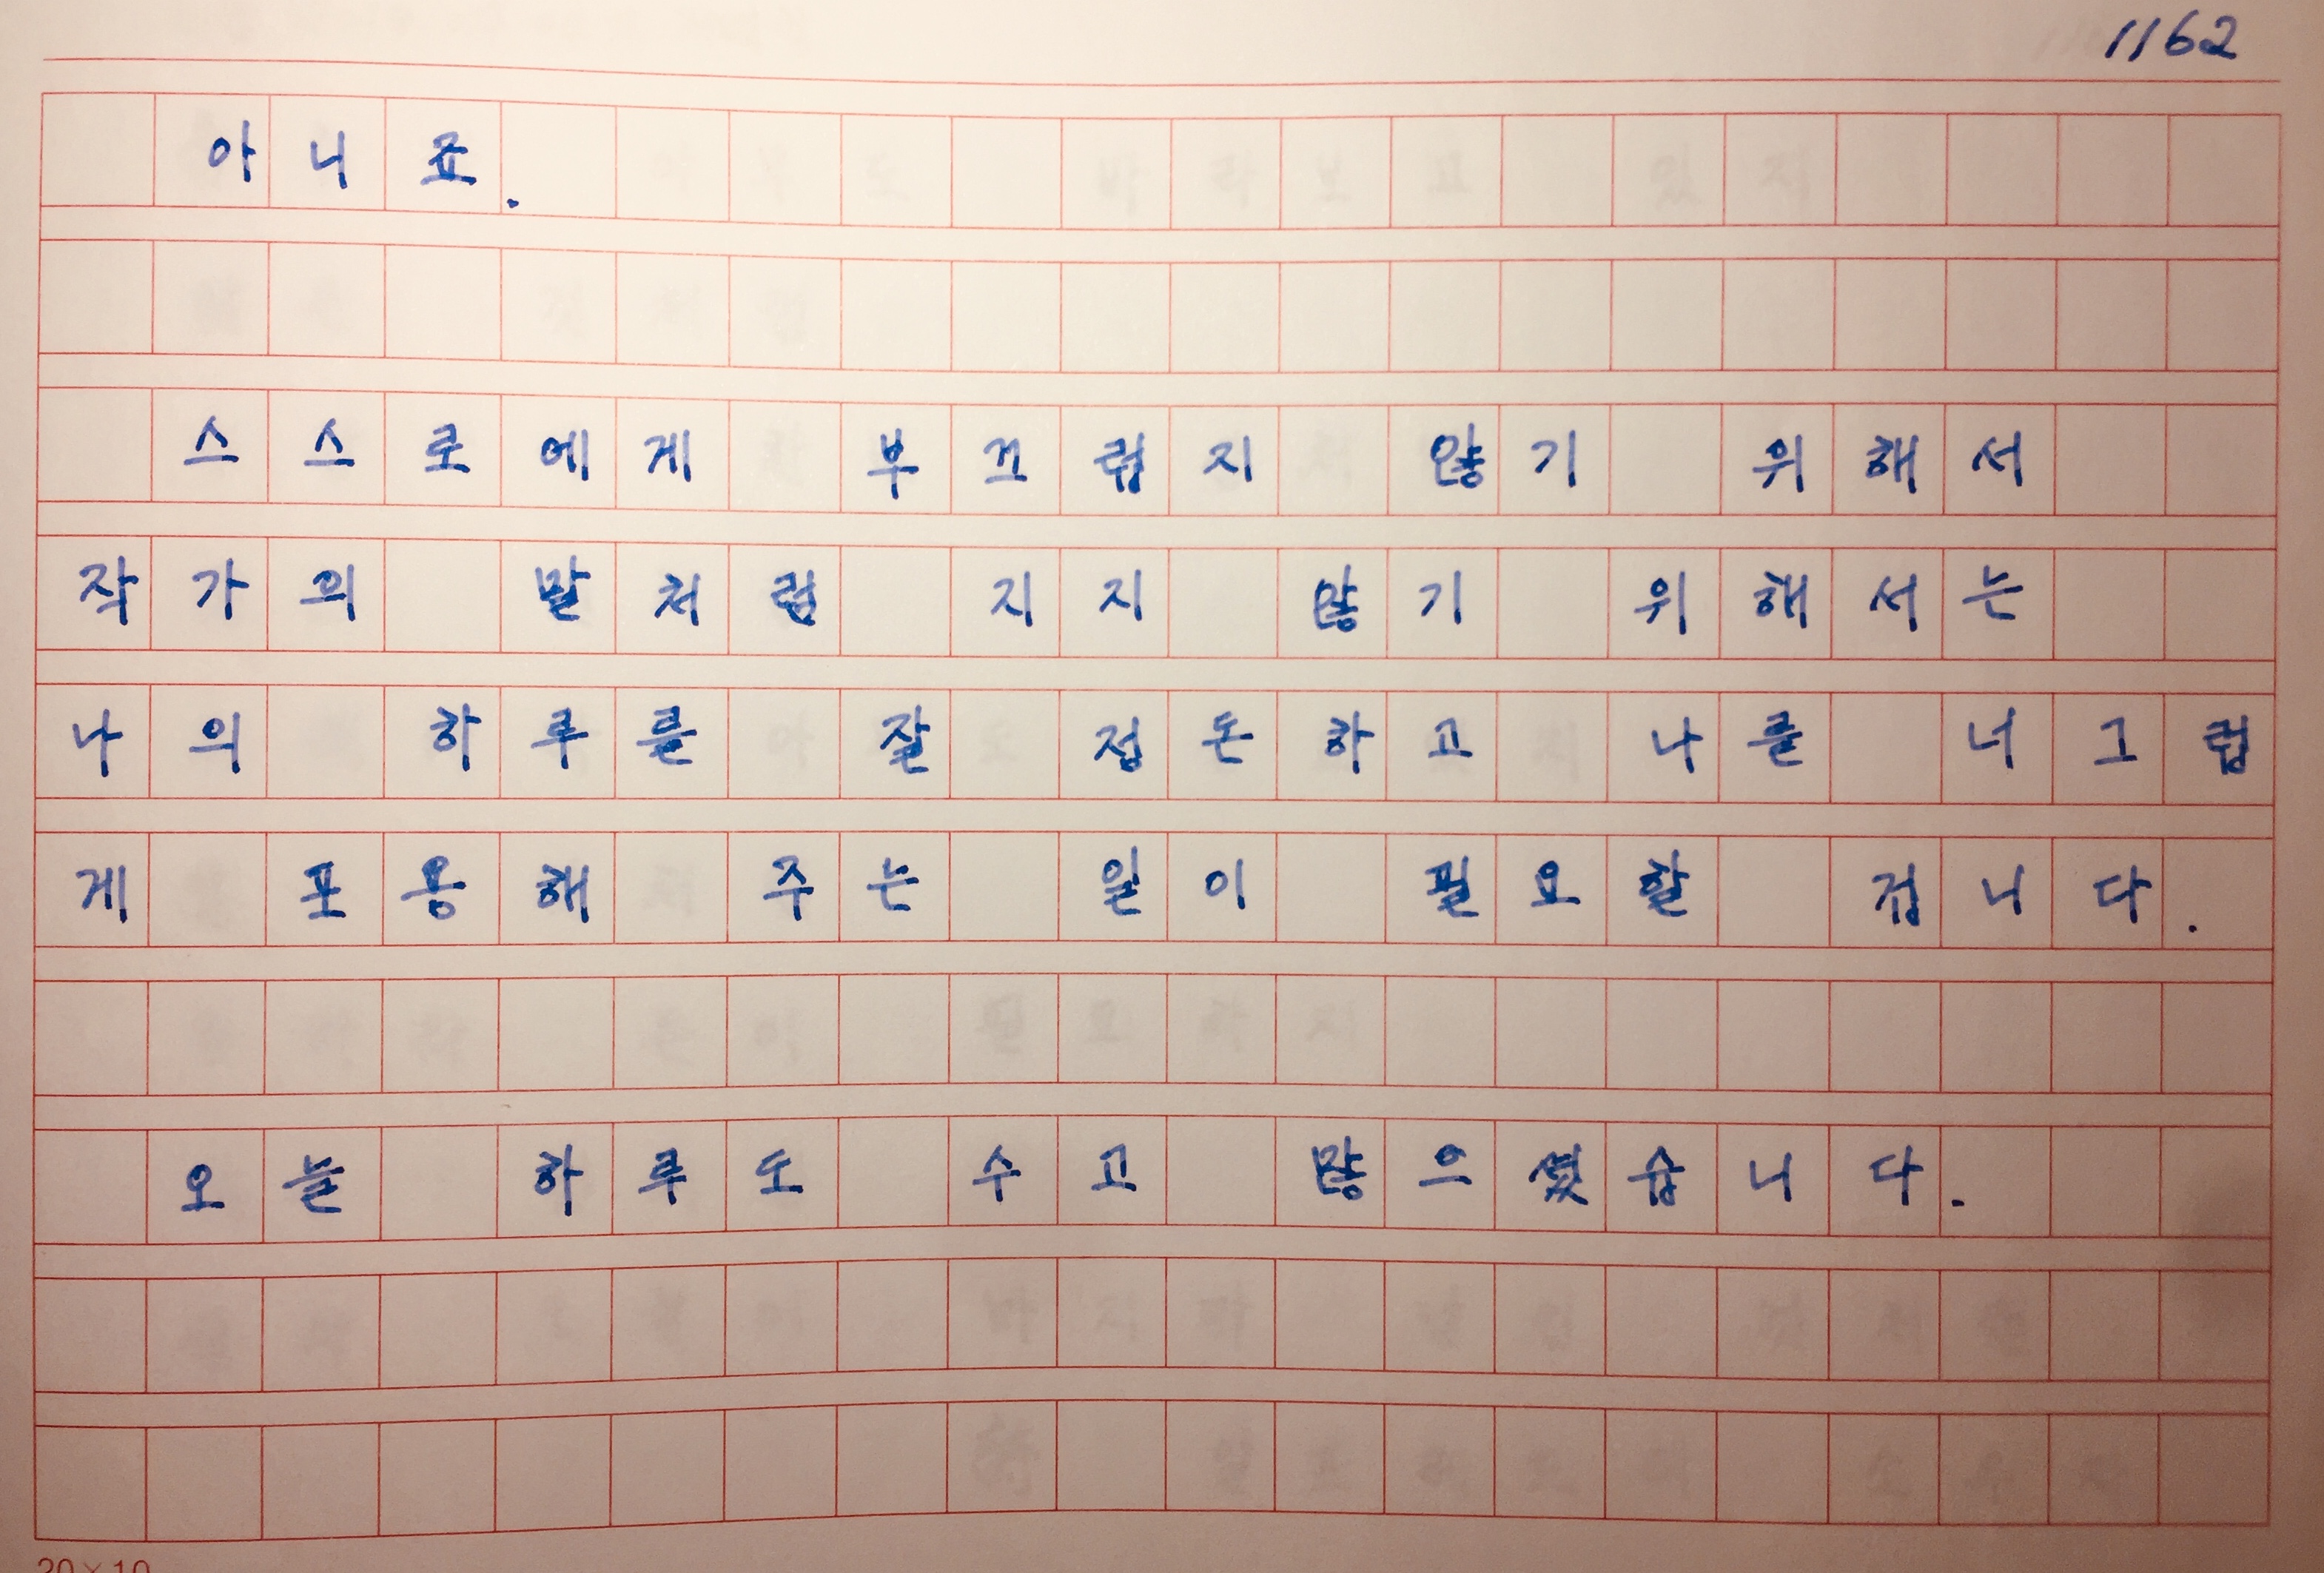 1162
아니죠.
스스로에게 부끄럽지 않기 위해서
작가의 말처럼 지지 않기 위해서는
나의 하루를 잘 정돈하고 나를 너그럽
게 포용해 주는 일이 필요할 겁니다.
오늘 하루도 수고 많으셨습니다.
20×10